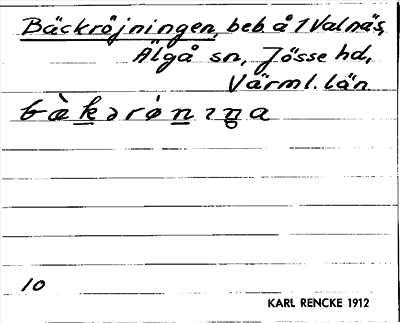 Bäckröjningen, beb. å 1 Valnäs,
Älgå sn, Jösse hd,
Värml. län
10
KARL RENCKE 1912